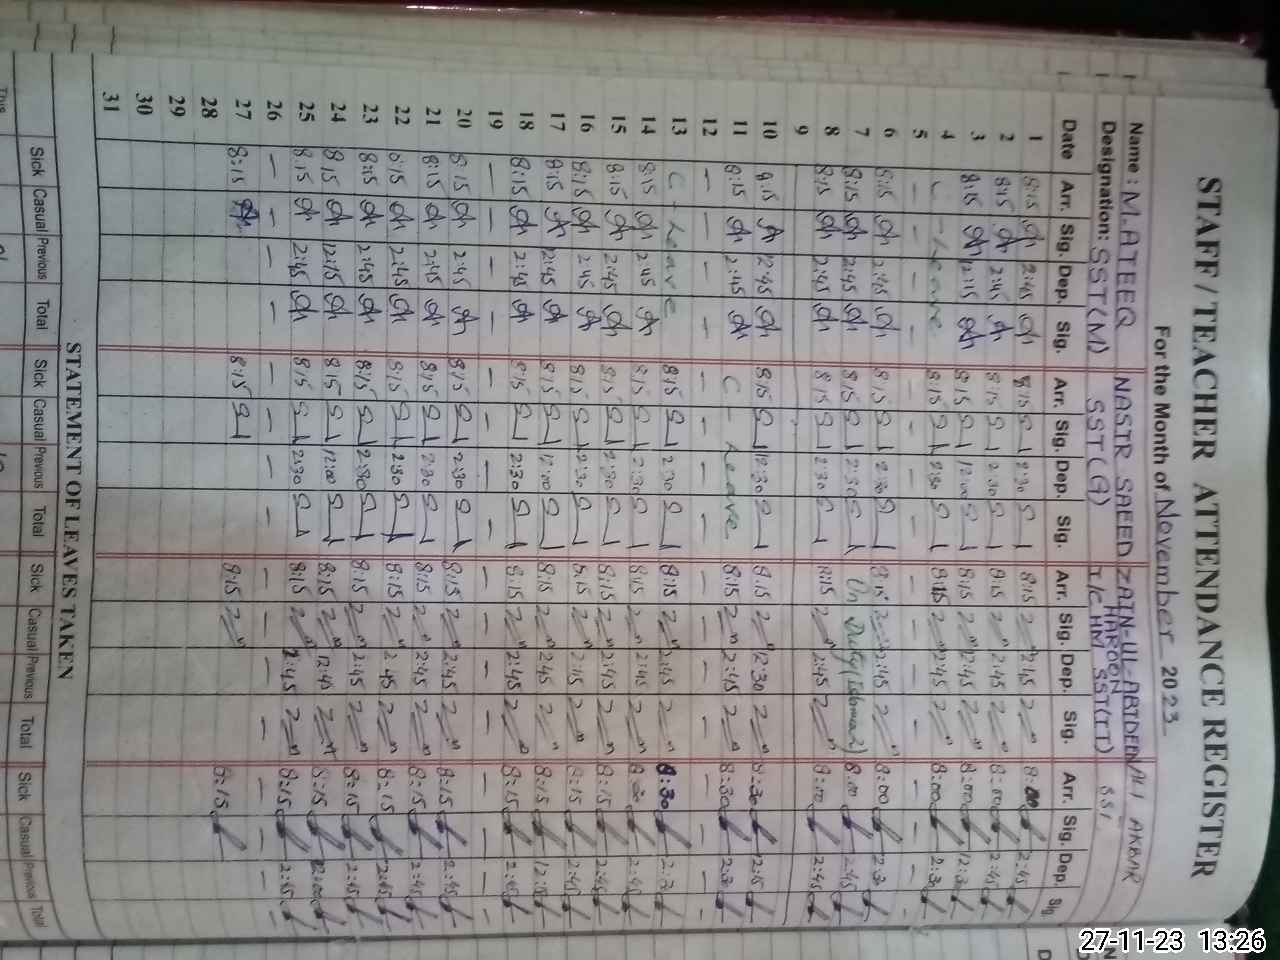 STAFF / TEACHER ATTENDANCE REGISTER
For the Month of November 2023
Name : M. ATEEQ NASIR SAEED ZAIN-UL-ABIDEEN ALI AKBAR
HAROON
Designation: SST (M) SST (G) I/C HM SST(IT) SST
Date Arr. Sig. Dep. Sig. Arr. Sig. Dep. Sig. Arr. Sig. Dep. Sig. Arr. Sig. Dep. Sig.
1 8:15 2:45 8:15 2:30 8:15 2:45 8:00 2:45
2 8:15 2:45 8:15 2:30 8:15 2:45 8:00 2:45
3 8:15 12:15 8:15 12:00 8:15 12:45 8:00 12:30
4 C - Leave 8:15 2:30 8:15 2:45 8:00 2:30
5 — — — — — —
6 8:15 2:45 8:15 2:30 8:15 2:45 8:00 2:30
7 8:15 2:45 8:15 2:30 On Duty 8:00 2:45
8 8:15 2:45 8:15 2:30 8:15 2:45 8:00 2:45
9
10 8:15 12:45 8:15 12:30 8:15 12:30 8:30 12:15
11 8:15 2:45 C Leave 8:15 2:45 8:30 2:30
12 — — — — — —
13 C - Leave 8:15 2:30 8:15 2:45 8:30 2:30
14 8:15 2:45 8:15 2:30 8:15 2:45 2:45
15 8:15 2:45 8:15 2:30 8:15 2:45 8:15 2:45
16 8:15 2:45 8:15 2:30 8:15 2:45 8:15 2:45
17 8:15 12:45 8:15 12:00 8:15 12:45 8:15
18 8:15 2:45 8:15 2:30 8:15 2:45 8:15 2:45
19 — — — — — — — —
20 8:15 2:45 8:15 2:30 8:15 2:45 8:15 2:45
21 8:15 2:45 8:15 2:30 8:15 2:45 8:15 2:45
22 8:15 2:45 8:15 2:30 8:15 2:45 8:15 2:45
23 8:15 2:45 8:15 2:30 8:15 2:45 8:15 2:45
24 8:15 12:15 8:15 12:00 8:15 12:45 8:15 12:00
25 8:15 2:45 8:15 2:30 8:15 2:45 8:15 2:45
26 — — — — — — — —
27 8:15 8:15 8:15 8:15
28
29
30
31
STATEMENT OF LEAVES TAKEN
Sick Casual Previous Total Sick Casual Previous Total Sick Casual Previous Total Sick Casual Previous Total
This
27-11-23 13:26